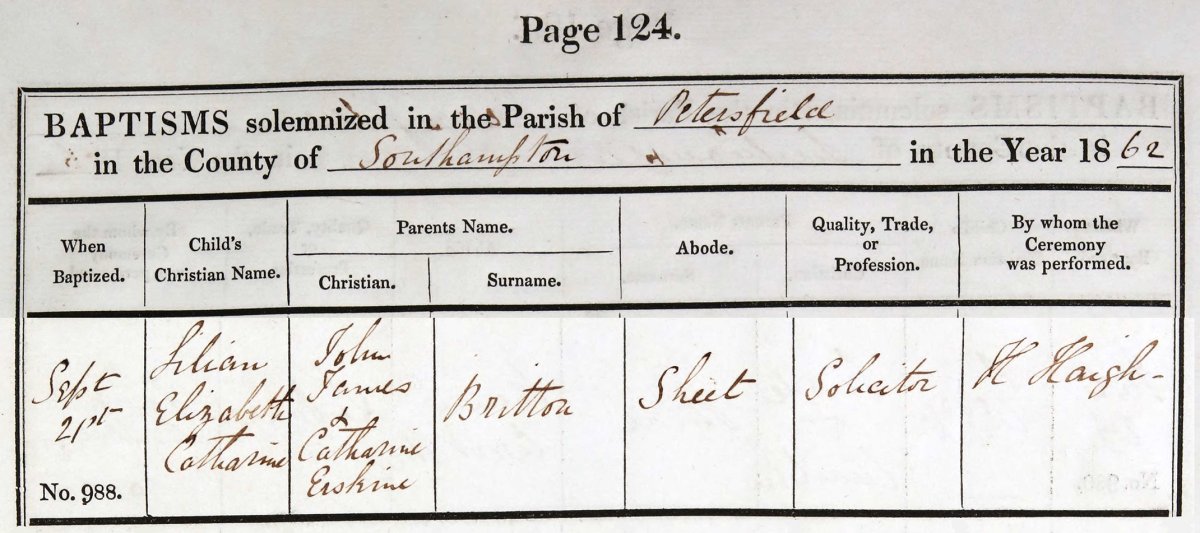 Page 124.
BAPTISMS solemnized in the Parish of Petersfield
in the County of Southampton in the Year 18 62
When Baptized.
Child's Christian Name.
Parents Name.
Christian.
Surname.
Abode.
Quality, Trade, or Profession.
By whom the Ceremony was performed.
Sept
21st
No. 988.
Lilian
Elizabeth
Catharine
John
James
&
Catharine
Erskine
Britton
Sheet
Solicitor
H Haigh-